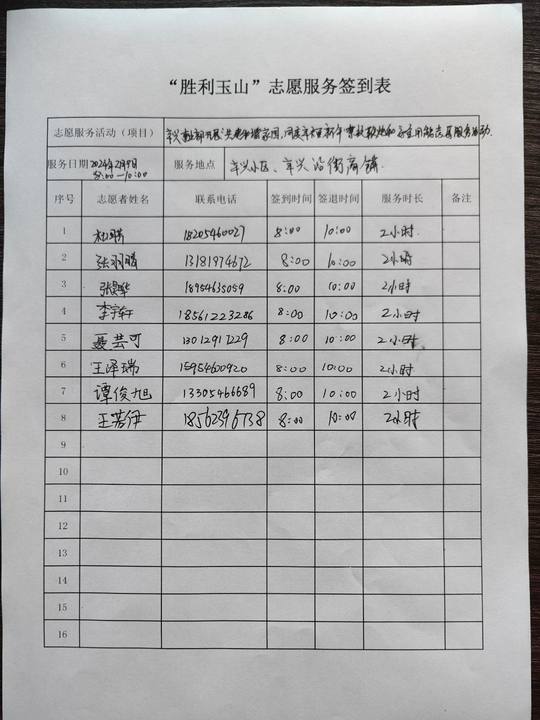 “胜利玉山”志愿服务签到表
志愿服务活动（项目） 辛兴
服务日期 2024年2月9日 8:00—10:00 服务地点 辛兴小区、辛兴沿街商铺
序号 志愿者姓名 联系电话 签到时间 签退时间 服务时长 备注
1 18205460027 8:00 10:00 2小时
2 张羽腾 13181974672 8:00 10:00 2小时
3 18954635059 8:00 10:00 2小时
4 李宇轩 18561223286 8:00 10:00 2小时
5 聂芸可 13012917229 8:00 10:00 2小时
6 王泽瑞 15954600920 8:00 10:00 2小时
7 谭俊旭 13305466689 8:00 10:00 2小时
8 王芳伊 18562396738 8:00 10:00 2小时
9
10
11
12
13
14
15
16